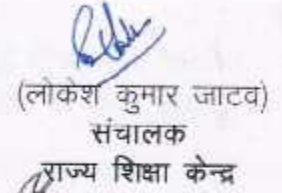 (लोकेश कुमार जाटव)
संचालक
राज्य शिक्षा केन्द्र